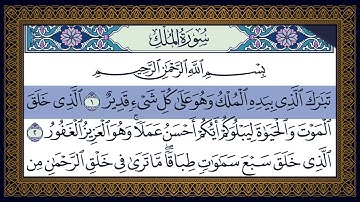 سُورَةُ المُلْكِ
بِسْمِ اللَّهِ الرَّحْمَٰنِ الرَّحِيمِ
تَبَٰرَكَ الَّذِي بِيَدِهِ الْمُلْكُ وَهُوَ عَلَىٰ كُلِّ شَيْءٍ قَدِيرٌ ١ الَّذِي خَلَقَ
الْمَوْتَ وَالْحَيَوٰةَ لِيَبْلُوَكُمْ أَيُّكُمْ أَحْسَنُ عَمَلًا ۚ وَهُوَ الْعَزِيزُ الْغَفُورُ ٢
الَّذِي خَلَقَ سَبْعَ سَمَٰوَٰتٍ طِبَاقًا ۖ مَّا تَرَىٰ فِي خَلْقِ الرَّحْمَٰنِ مِن